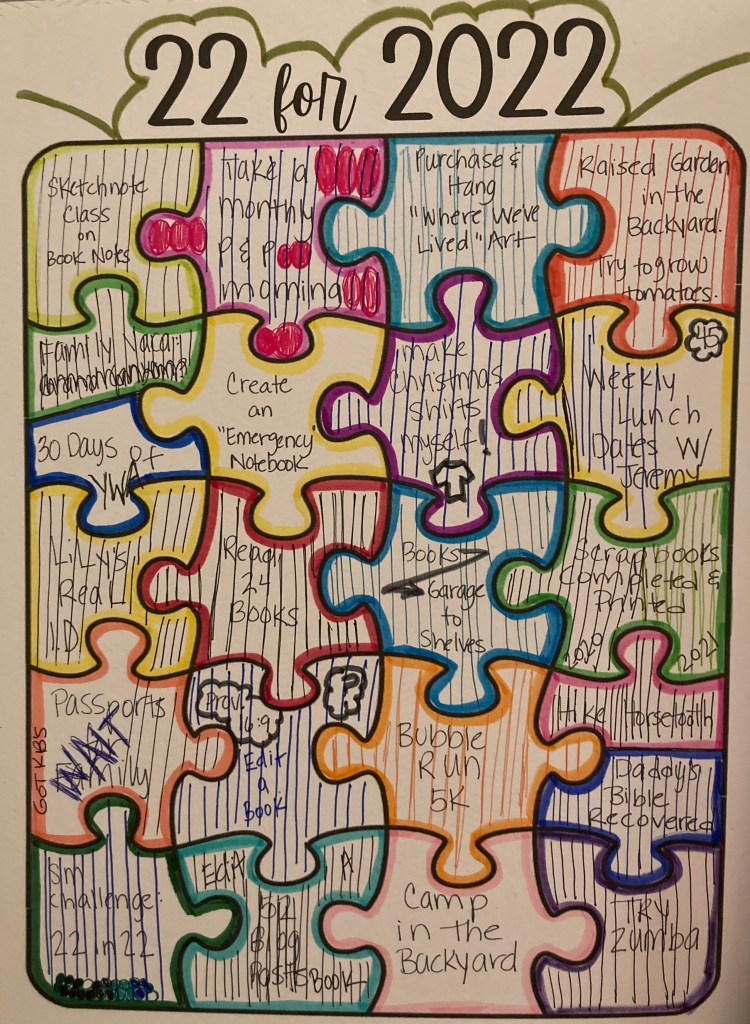 22 for 2022
Sketchnote
Class
on
Book Notes
Take a
monthly
P & P
morning
Purchase &
Hang
"Where We've
Lived" Art
Raised Garden
in the
Backyard.
Try to grow
tomatoes.
Family Vaca:
30 Days of
YWA
Create
an
"Emergency"
Notebook
make
Christmas
shirts
myself!
45
Weekly
Lunch
Dates w/
Jeremy
Lilly's
Real
I.D
Read
24
Books
Books
Garage
to
Shelves
Scrapbooks
Completed &
Printed
2020 2021
Passports
WAIT
Family
GOT KB'S
Prov.
16:9
?
Edit
a
Book
Bubble
Run
5K
Hike Horsetooth
Daddy's
Bible
Recovered
Sm
Challenge:
22 in 22
Edit A
52
Blog
Posts Book
Camp
in the
Backyard
TRY
Zumba